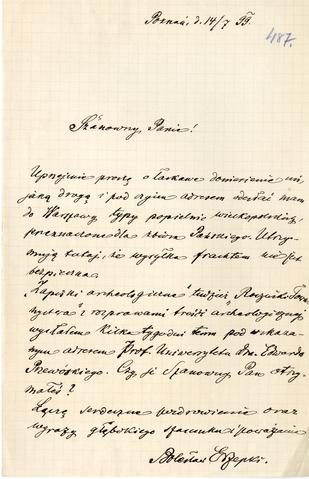 Poznań, d. 14/7 99.
487.
Szanowny Panie!
Uprzejmie proszę o łaskawe doniesienie mi,
jaką drogą i pod czyim adresem odesłać mam
do Warszawy typy popielnic wielkopolskich,
przeznaczone dla zbioru Pańskiego. Utrzy-
mują tutaj, że wysyłka frachtem nie jest
bezpieczna.
"Zapiski archeologiczne" tudzież "Roczniki Towa-
rzystwa" z rozprawami treści archeologicznej
wysłałem kilka tygodni temu pod wskaza-
nym adresem Prof. Uniwersytetu Dra. Edwarda
Przewóskiego. Czy je Szanowny Pan otrzy-
małeś?
Łączę serdeczne pozdrowienie oraz
wyrazy głębokiego szacunku i poważania
Bolesław Erzepki.